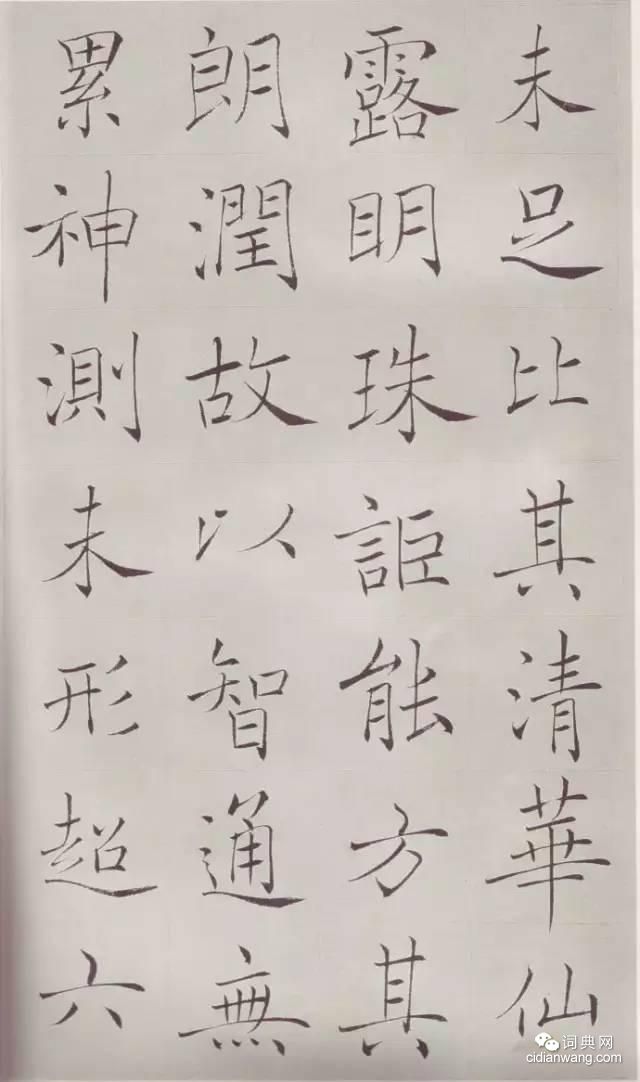 未足比其清華仙
露明珠詎能方其
朗潤故以智通無
累神測未形超六
词典网
cidianwang.com